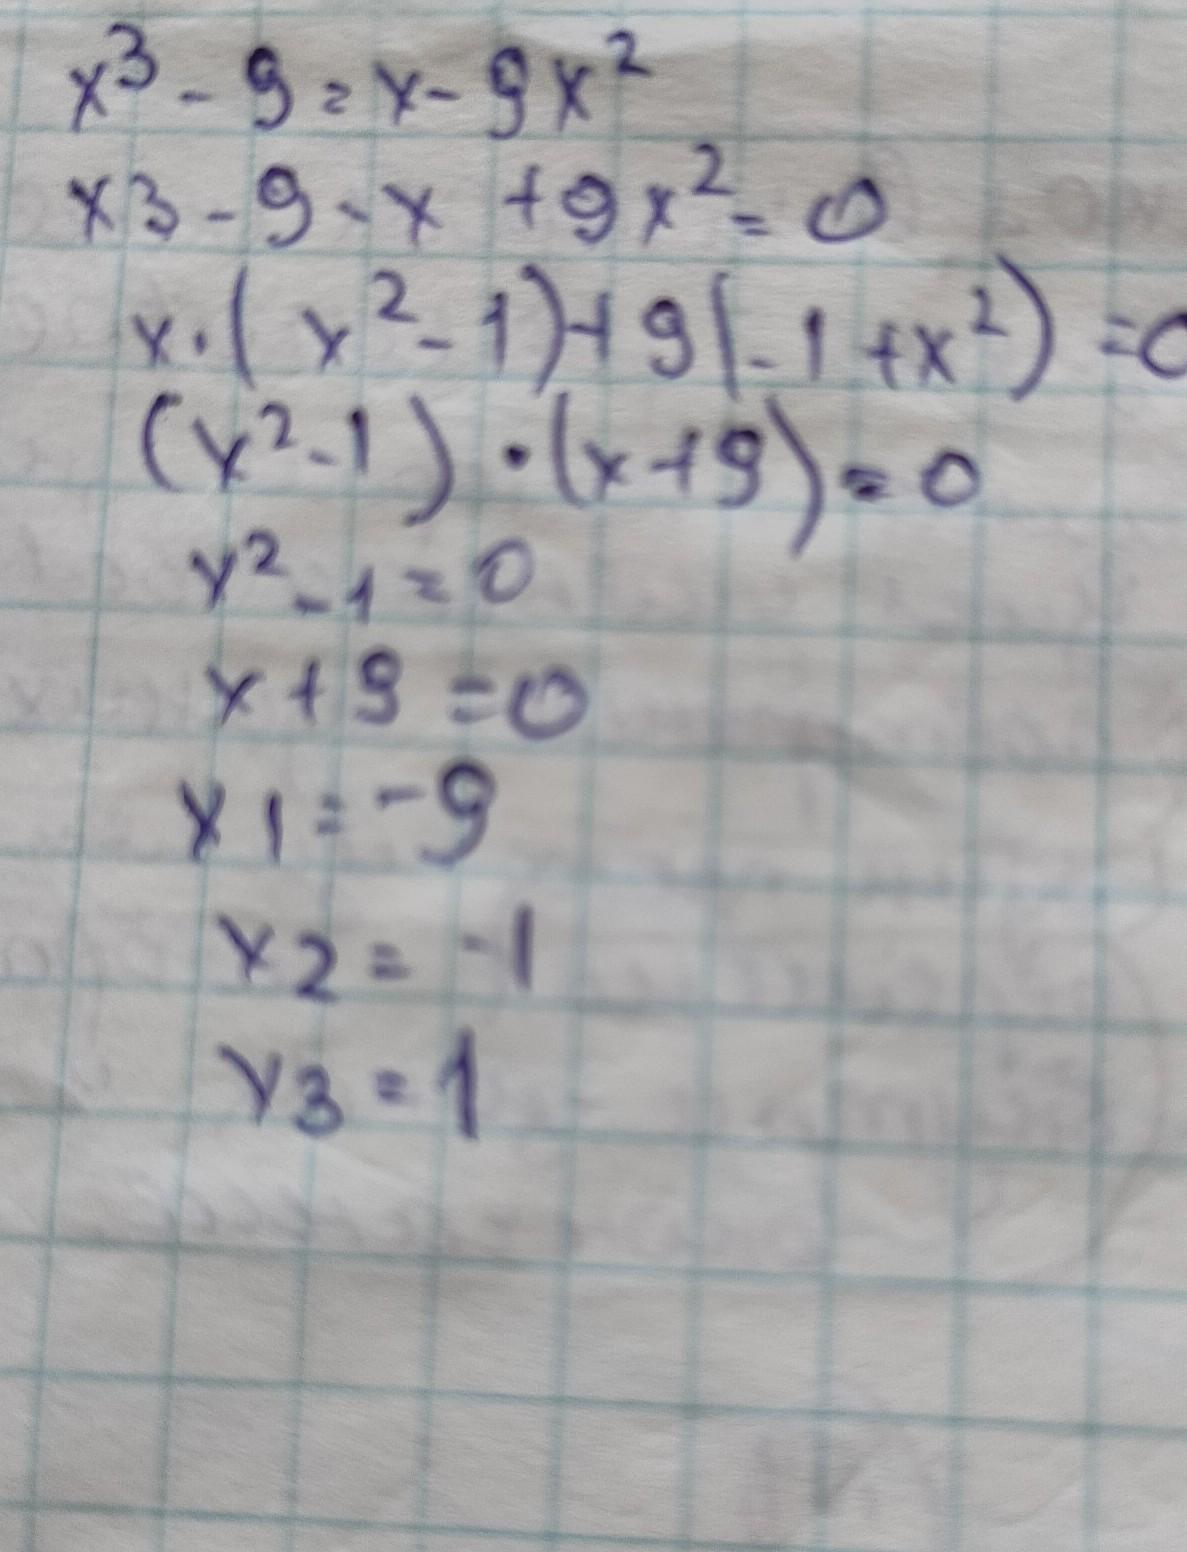 x³ - 9 = x - 9x²
x3 - 9 - x + 9x² = 0
x·(x² - 1) + 9(-1 + x²) = 0
(x² - 1)·(x + 9) = 0
x² - 1 = 0
x + 9 = 0
x1 = -9
x2 = -1
x3 = 1